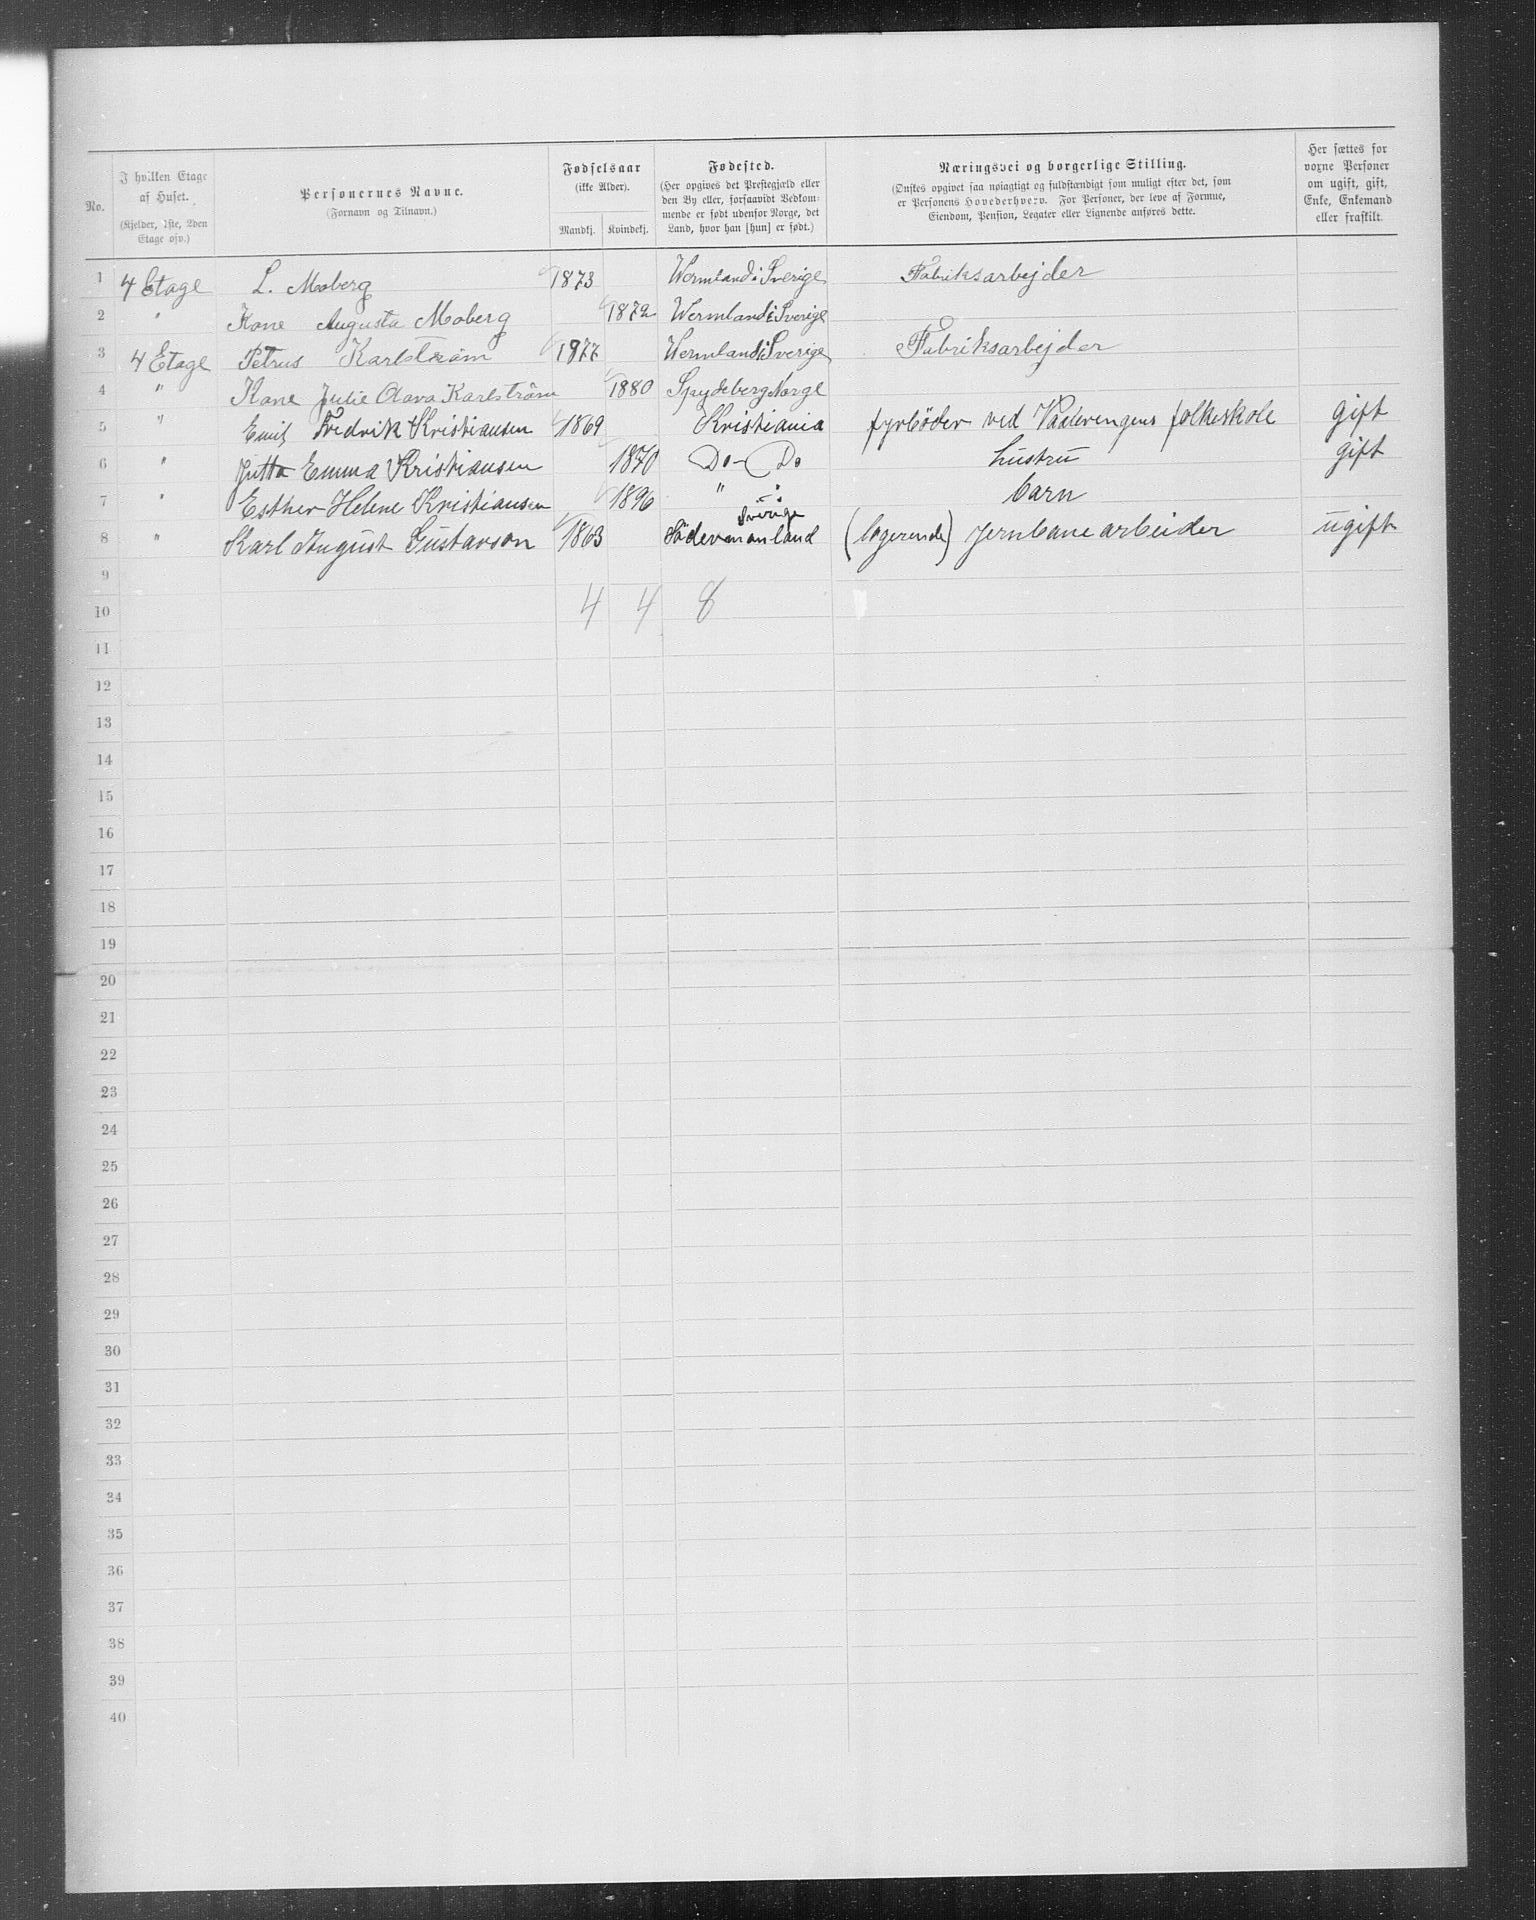 No.
I hvilken Etage af Huset.
(Kjelder, 1ste, 2den Etage osv.)
Personernes Navne.
(Fornavn og Tilnavn.)
Fødselsaar
(ikke Alder).
Mandkj. Kvindekj.
Fødested.
(Her opgives det Prestegjæld eller
den By eller, forsaavidt Vedkom-
mende er født udenfor Norge, det
Land, hvor han [hun] er født.)
Næringsvei og borgerlige Stilling.
(Ønskes opgivet saa nøiagtigt og fuldstændigt som muligt efter det, som
er Personens Hovederhverv. For Personer, der leve af Formue,
Eiendom, Pension, Legater eller Lignende anføres dette.
Her sættes for
voxne Personer
om ugift, gift,
Enke, Enkemand
eller fraskilt.
1 4 Etage L. Moberg 1873 Wermland i Sverige Fabriksarbejder
2 " Kone Augusta Moberg 1872 Wermland i Sverige
3 4 Etage Petrus Karlström 1877 Wermland i Sverige Fabriksarbejder
4 " Kone Julie Olava Karlström 1880 Spydeberg Norge
5 " Emil Fredrik Kristiansen 1869 Kristiania fyrböder ved Vaalerengens folkeskole gift
6 " Jutta Emma Kristiansen 1870 Do - Do hustru gift
7 " Esther Helene Kristiansen 1896 " " barn
Sverige
8 " Karl August Gustavson 1863 Södermanland (logerende) jernbanearbeider ugift
9
10 4 4 8
11
12
13
14
15
16
17
18
19
20
21
22
23
24
25
26
27
28
29
30
31
32
33
34
35
36
37
38
39
40